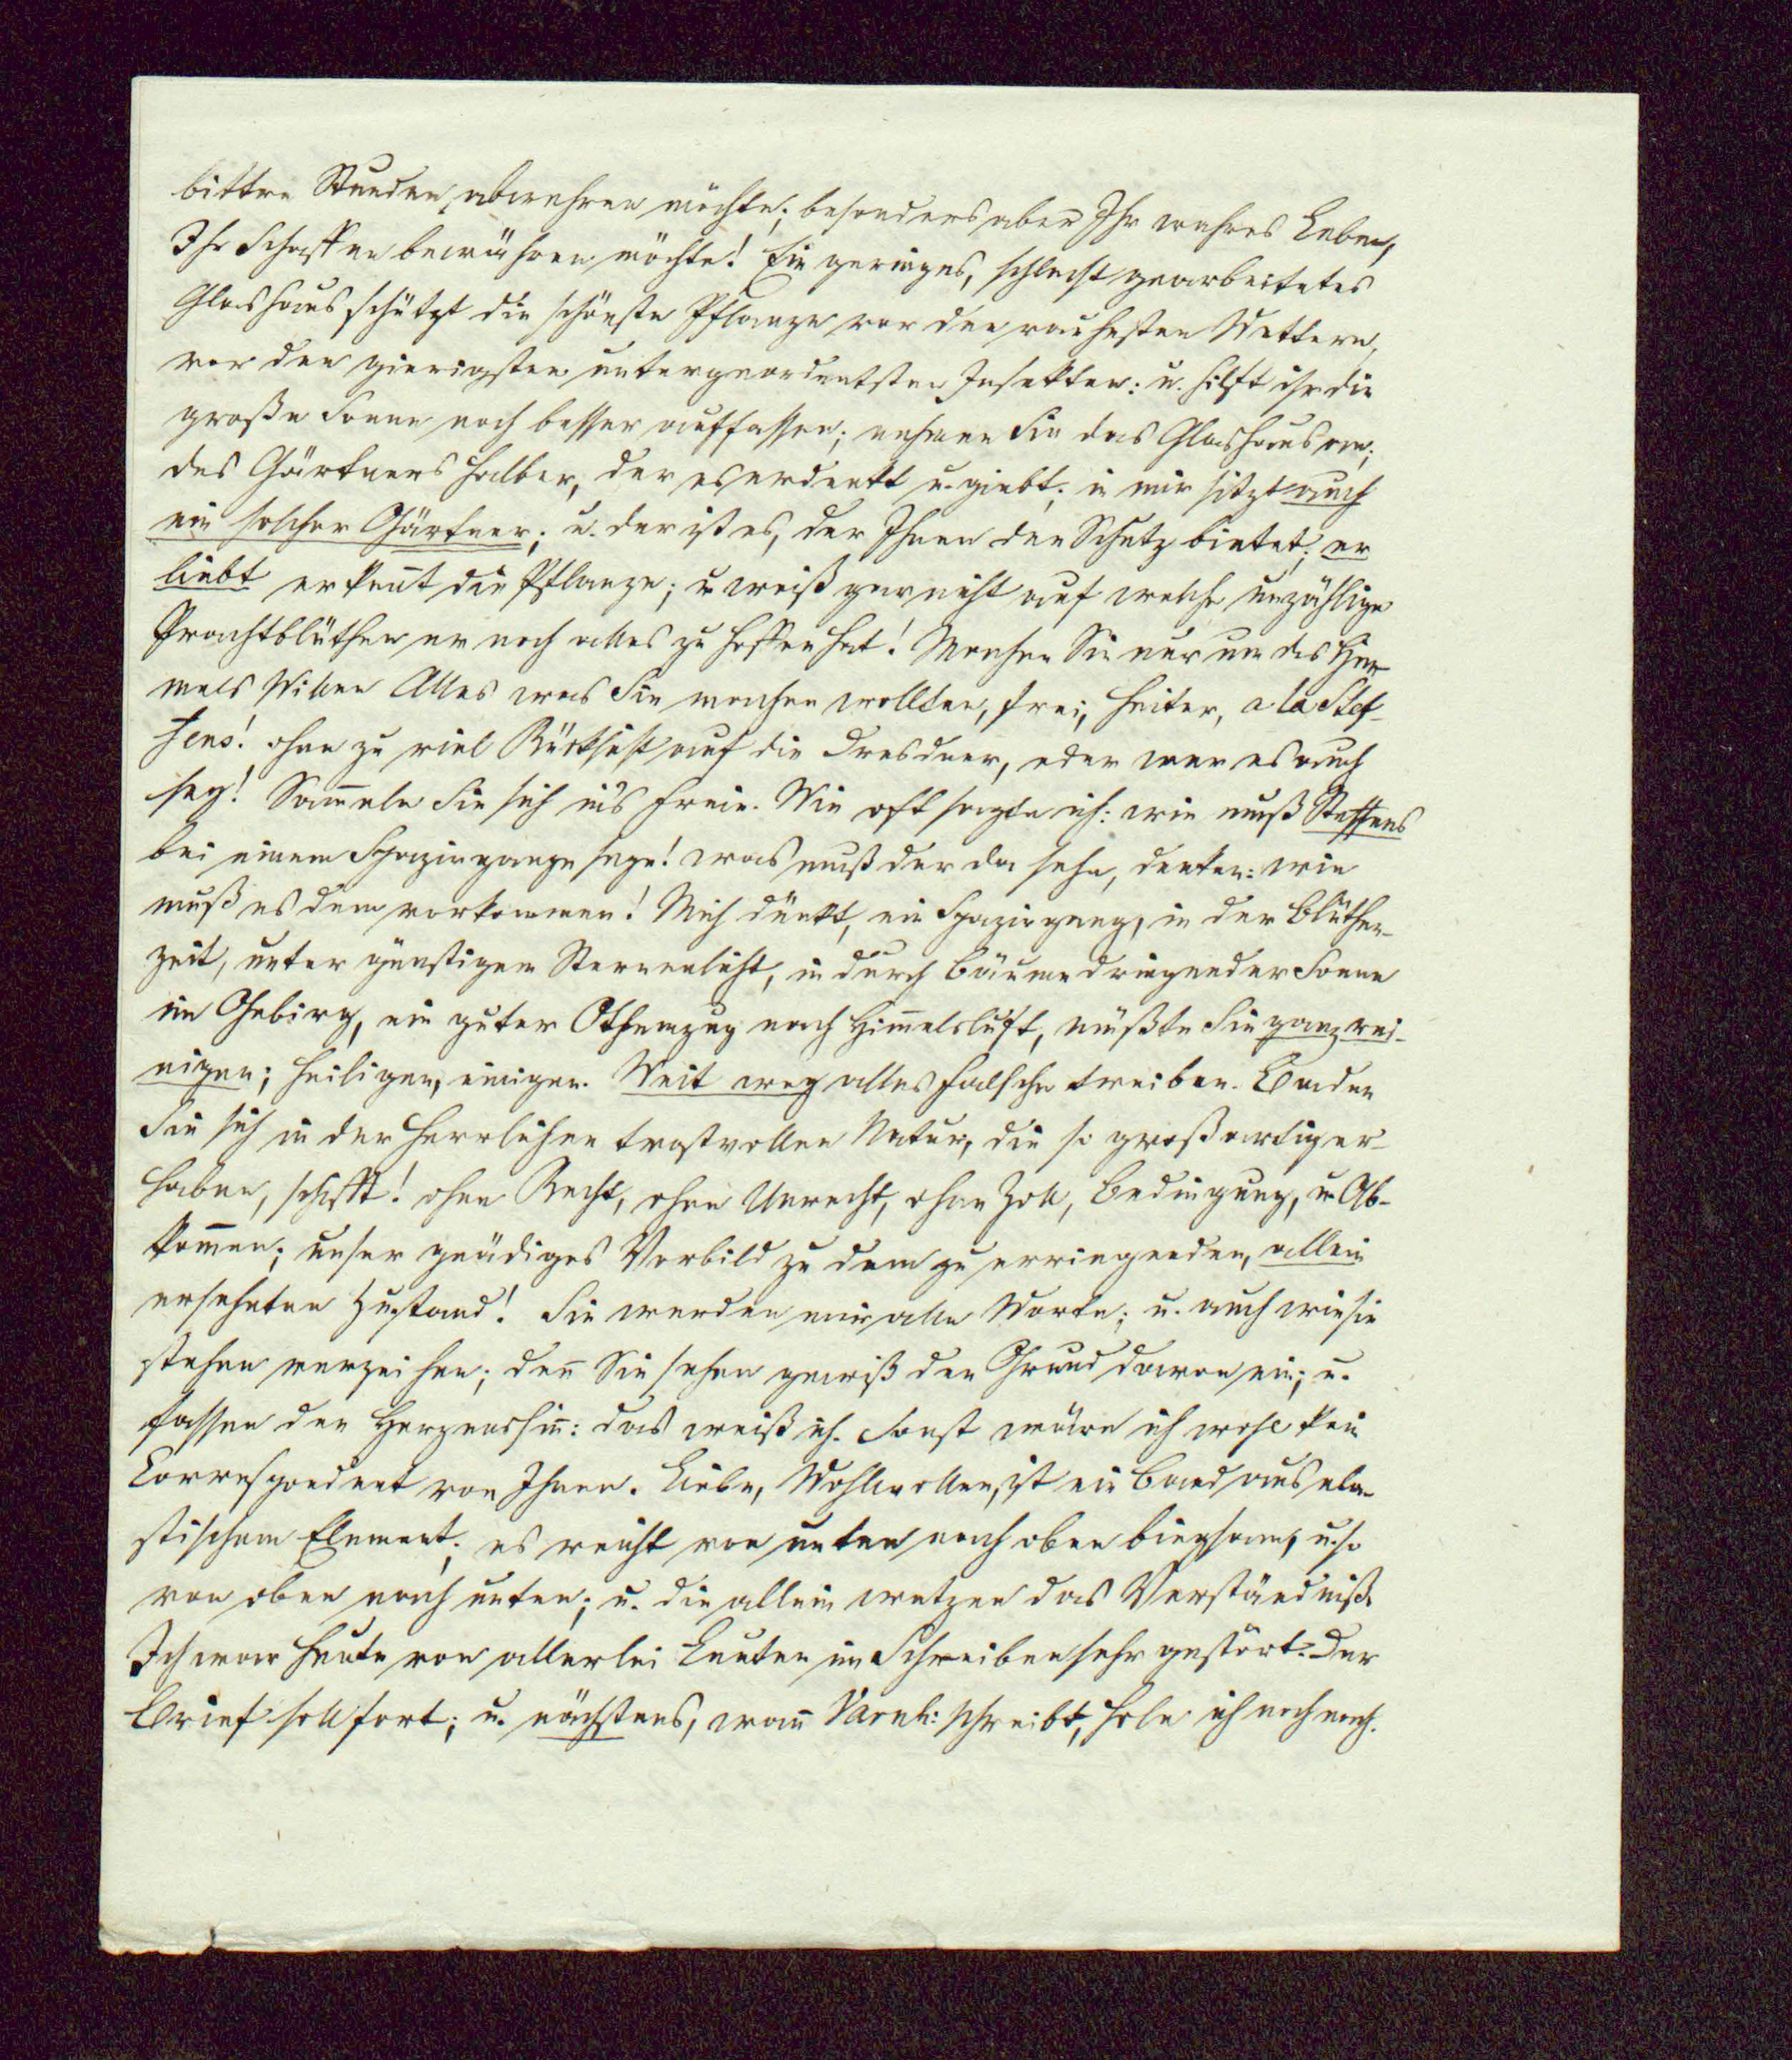 bittre Stunden, abwehren möchte; besonders aber Ihr wahres Leben,
Ihr Schaffen bewähren möchte! Ein geringes, schlecht gearbeitetes
Glashaus schützt die schönste Pflanze vor den rauhesten Wettern,
vor den gierigsten untergeordentsten Insekten: u. hilft ihr die
große Sonne noch besser auffassen; nehmen Sie das Glashaus an;
des Gärtners halber, der es erdenkt u. giebt; in mir sitzt auch
ein solcher Gärtner; u. der ist es, der Ihnen den Schutz bietet; er
liebt erkeñt die Pflanze; u weiß gar nicht auf welche unzählige
Prachtblüthen er noch alles zu hoffen hat! Machen Sie nur um des Him-
mels Willen Alles was Sie machen wollten, frei, heiter, a la Stef-
fens! ohne zu viel Rücksicht auf die Dresdner, oder wer es auch
sey! Sam̄eln Sie sich in's Freie. Wie oft sagte ich: wie muß Steffens
bei einem Spaziergange seyn! was muß der da sehn, denken: wie
muß es dem vorkommen! Mich dünkt, ein Spaziergang, in der Blüthen-
zeit, unter günstigem Sternenlicht, in durch Bäume dringender Sonne
im Gebirg, ein guter Othemzug nach Him̄elsluft, müßte Sie ganz rei-
nigen; heiligen, einigen. Weit weg alles Falsche treiben. Baden
Sie sich in der herrlichen trostvollen Natur, die so großartig er-
haben, schafft! ohne Recht, ohne Unrecht, ohne Zoll, Bedingung, u Ab-
kom̄en; unser gnädiges Vorbild zu dem zu erringenden, allein
ersehnten Zustand! Sie werden mir alle Worte; u. auch wie sie
stehen verzeihen; deñ Sie sehen gewiß den Grund davon ein; u.
fassen den Herzenssiñ: das weiß ich. Sonst wäre ich wohl kein
Correspondent von Ihnen. Liebe, Wohlwollen, ist ein Band aus ela-
stischem Element; es reicht von unten nach oben biegsam, u. so
von oben nach unten; u. die allein wetzen das Verständniß.
Ich war heute von allerlei Leuten im Schreiben sehr gestört. Der
Brief soll fort; u. nächstens, wañ Varnh: schreibt, hole ich noch nach.